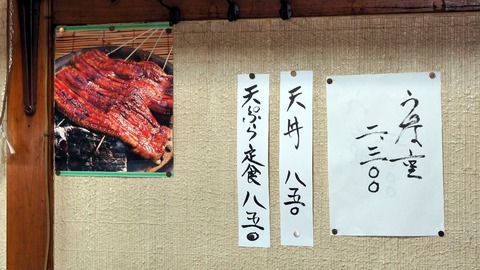 うな重
二三〇〇
天丼 八五〇
天ぷら定食 八五〇